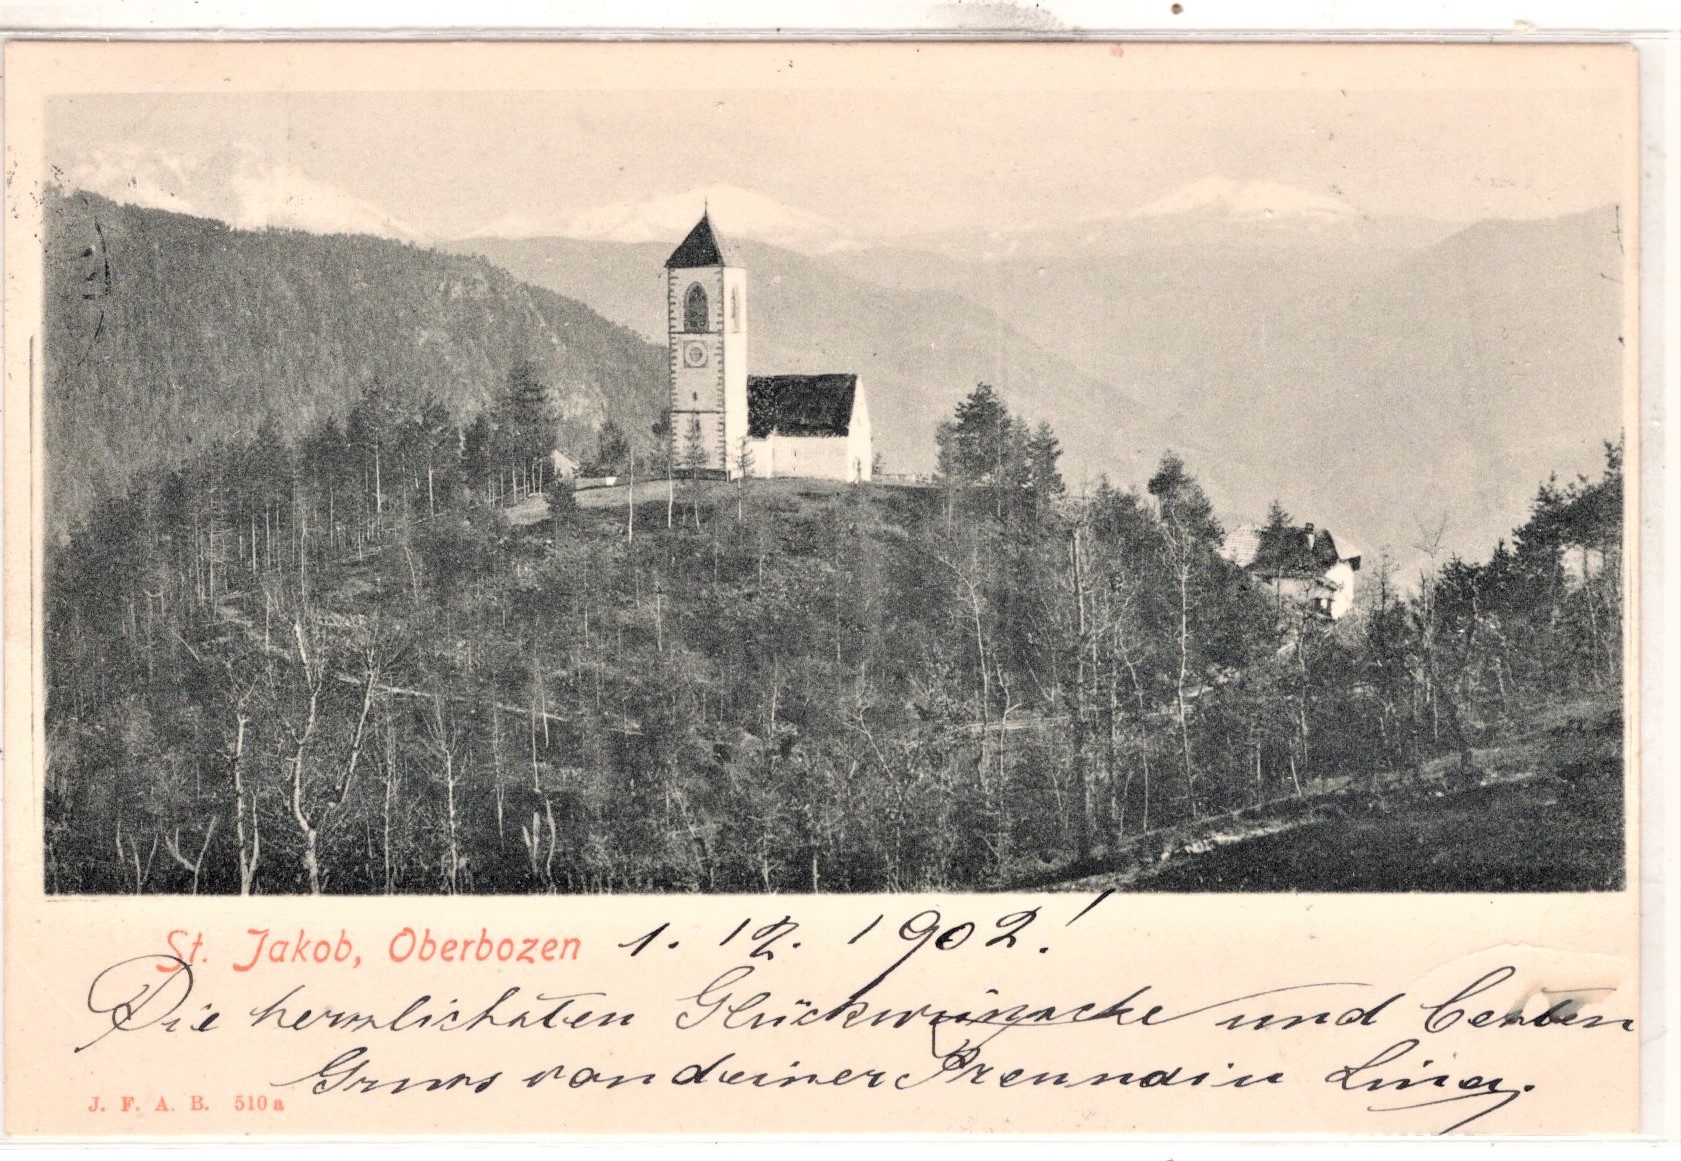 St. Jakob, Oberbozen 1. 12. 1902!
Die herzlichsten Glückwünsche und besten
Gruss von deiner Freundin Lina.
J. F. A. B. 510a